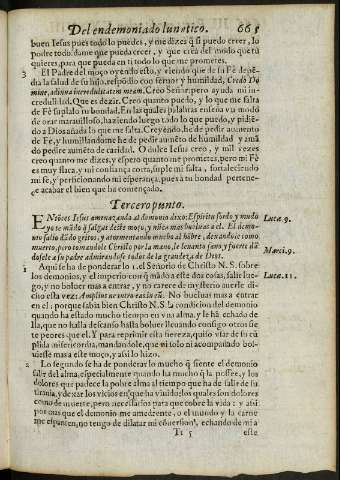 Del endemoniado lunatico. 665
buen Iesus pues todo lo puedes, y me dizes q̃ si puedo creer, lo
podre todo, dame que pueda creer, y que crea del modo que tu
quieres, para que pueda en ti todo lo que me prometes.
3 El Padre del moço oyendo esto, y viendo que de su Fè depẽ-
dia la salud de su hijo, respõdio con feruor y humildad, Credo Do
mine, adiuua incredulitatem meam. Creo Señor, pero ayuda mi in-
credulidad. Que es dezir. Creo quanto puedo, y lo que me falta
de Fè suplalo tu bondad. En las quales palabras enseña vn modo
de orar marauilloso, haziendo luego todo lo que puedo, y pidiẽ-
do a Dios añada lo que me falta. Creyendo, he de pedir aumento
de Fè, y humillandome he de pedir aumẽto de humildad y amã
do pedire aumẽto de caridad. O dulce Iesus creo, y mil vezes
creo quanto me dizes, y espero quanto me prometes, pero mi Fè
es muy flaca, y mi confiança corta, suple mi falta, fortaleciendo
mi fe, y perficionando mi esperança, pues a tu bondad pertene-
ce acabar el bien que ha començado.
Tercero punto.
ENtõces Iesus amenazando al demonio dixo: Espiritu sordo y mudo Luca.9.
yo te mãdo q̃ salgas deste moço, y nũca mas bueluas a el. El demo-
nio salio dãdo gritos, y atormentando mucho al hõbre, dexandole como
muerto, pero tomandole Christo por la mano, le leuanto sano, y fuerte dã Marci.9.
dosele a su padre admirandose todos de la grandeza de Dios.
1 Aqui se ha de ponderar lo 1. el Señorio de Christo N.S. sobre Luca.11.
los demonios, y el imperio con q̃ mãdo a este dos cosas, salir lue-
go, y no boluer mas a entrar, y no carece de mysterio auerle di-
cho esta vez: Amplius ne introeas in eũ. No bueluas mas a entrar
en el: porque sabia bien Christo N.S. la condicion del demonio
quando ha estado mucho tiempo en vn alma, y le hã echado de
lla, que no halla descanso hasta boluer lleuando consigo otros sie
te peores que el. Y para reprimir esta fiereza, quiso vsar de su cũ
plida misericordia, mandandole, que ni solo ni acompañado bol-
uiesse mas a este moço, y assi lo hizo.
2 Lo segundo se ha de ponderar lo mucho q̃ siente el demonio
salir del alma, especialmente quando ha mucho q̃ la possee, y los
dolores que padece la pobre alma al tiempo que ha de salir de su
tirania, y dexar los vicios en que ha viuido; los quales son dolores
como de muerte, pero necessarios para que cobre la vida: y assi
por mas que el demonio me amedrente, o el mundo y la carne
me espanten, no tengo de dilatar mi cõuersion, echando de mi a
Tt 5 este